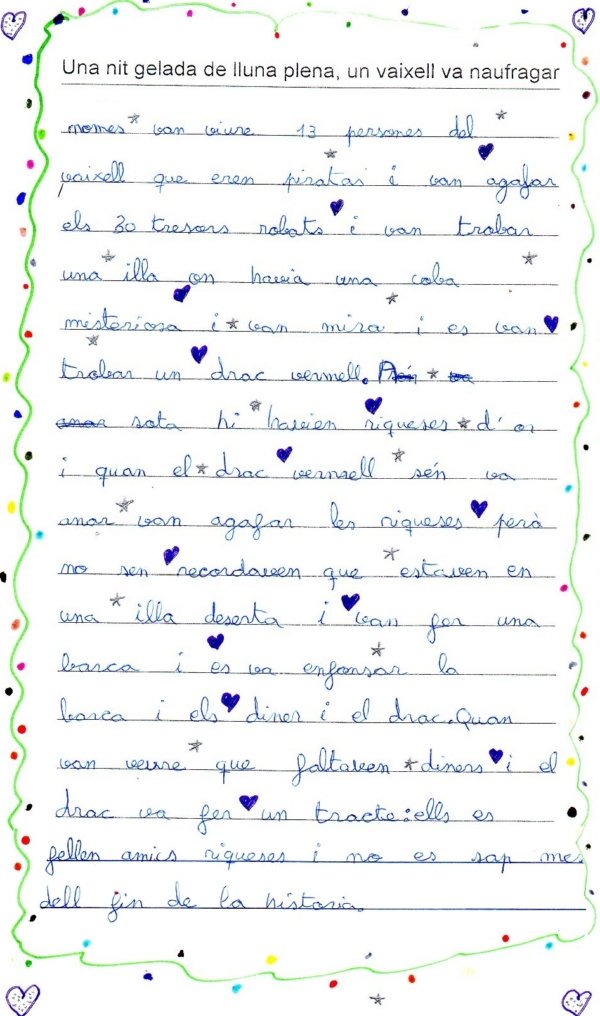 Una nit gelada de lluna plena, un vaixell va naufragar
nomes van viure 13 persones del
vaixell que eren piratas i van agafar
els 30 tresors robats i van trobar
una illa on havia una coba
misteriosa i van mira i es van
trobar un drac vermell.
sota hi havien riqueses d'or
i quan el drac vermell sén va
anar van agafar les riqueses però
no sen recordaven que estaven en
una illa deserta i van fer una
barca i es va enfonsar la
barca i els diner i el drac. Quan
van veure que faltaven diners i el
drac va fer un tracte: ells es
fellen amics riqueses i no es sap mes
dell fin de la historia.